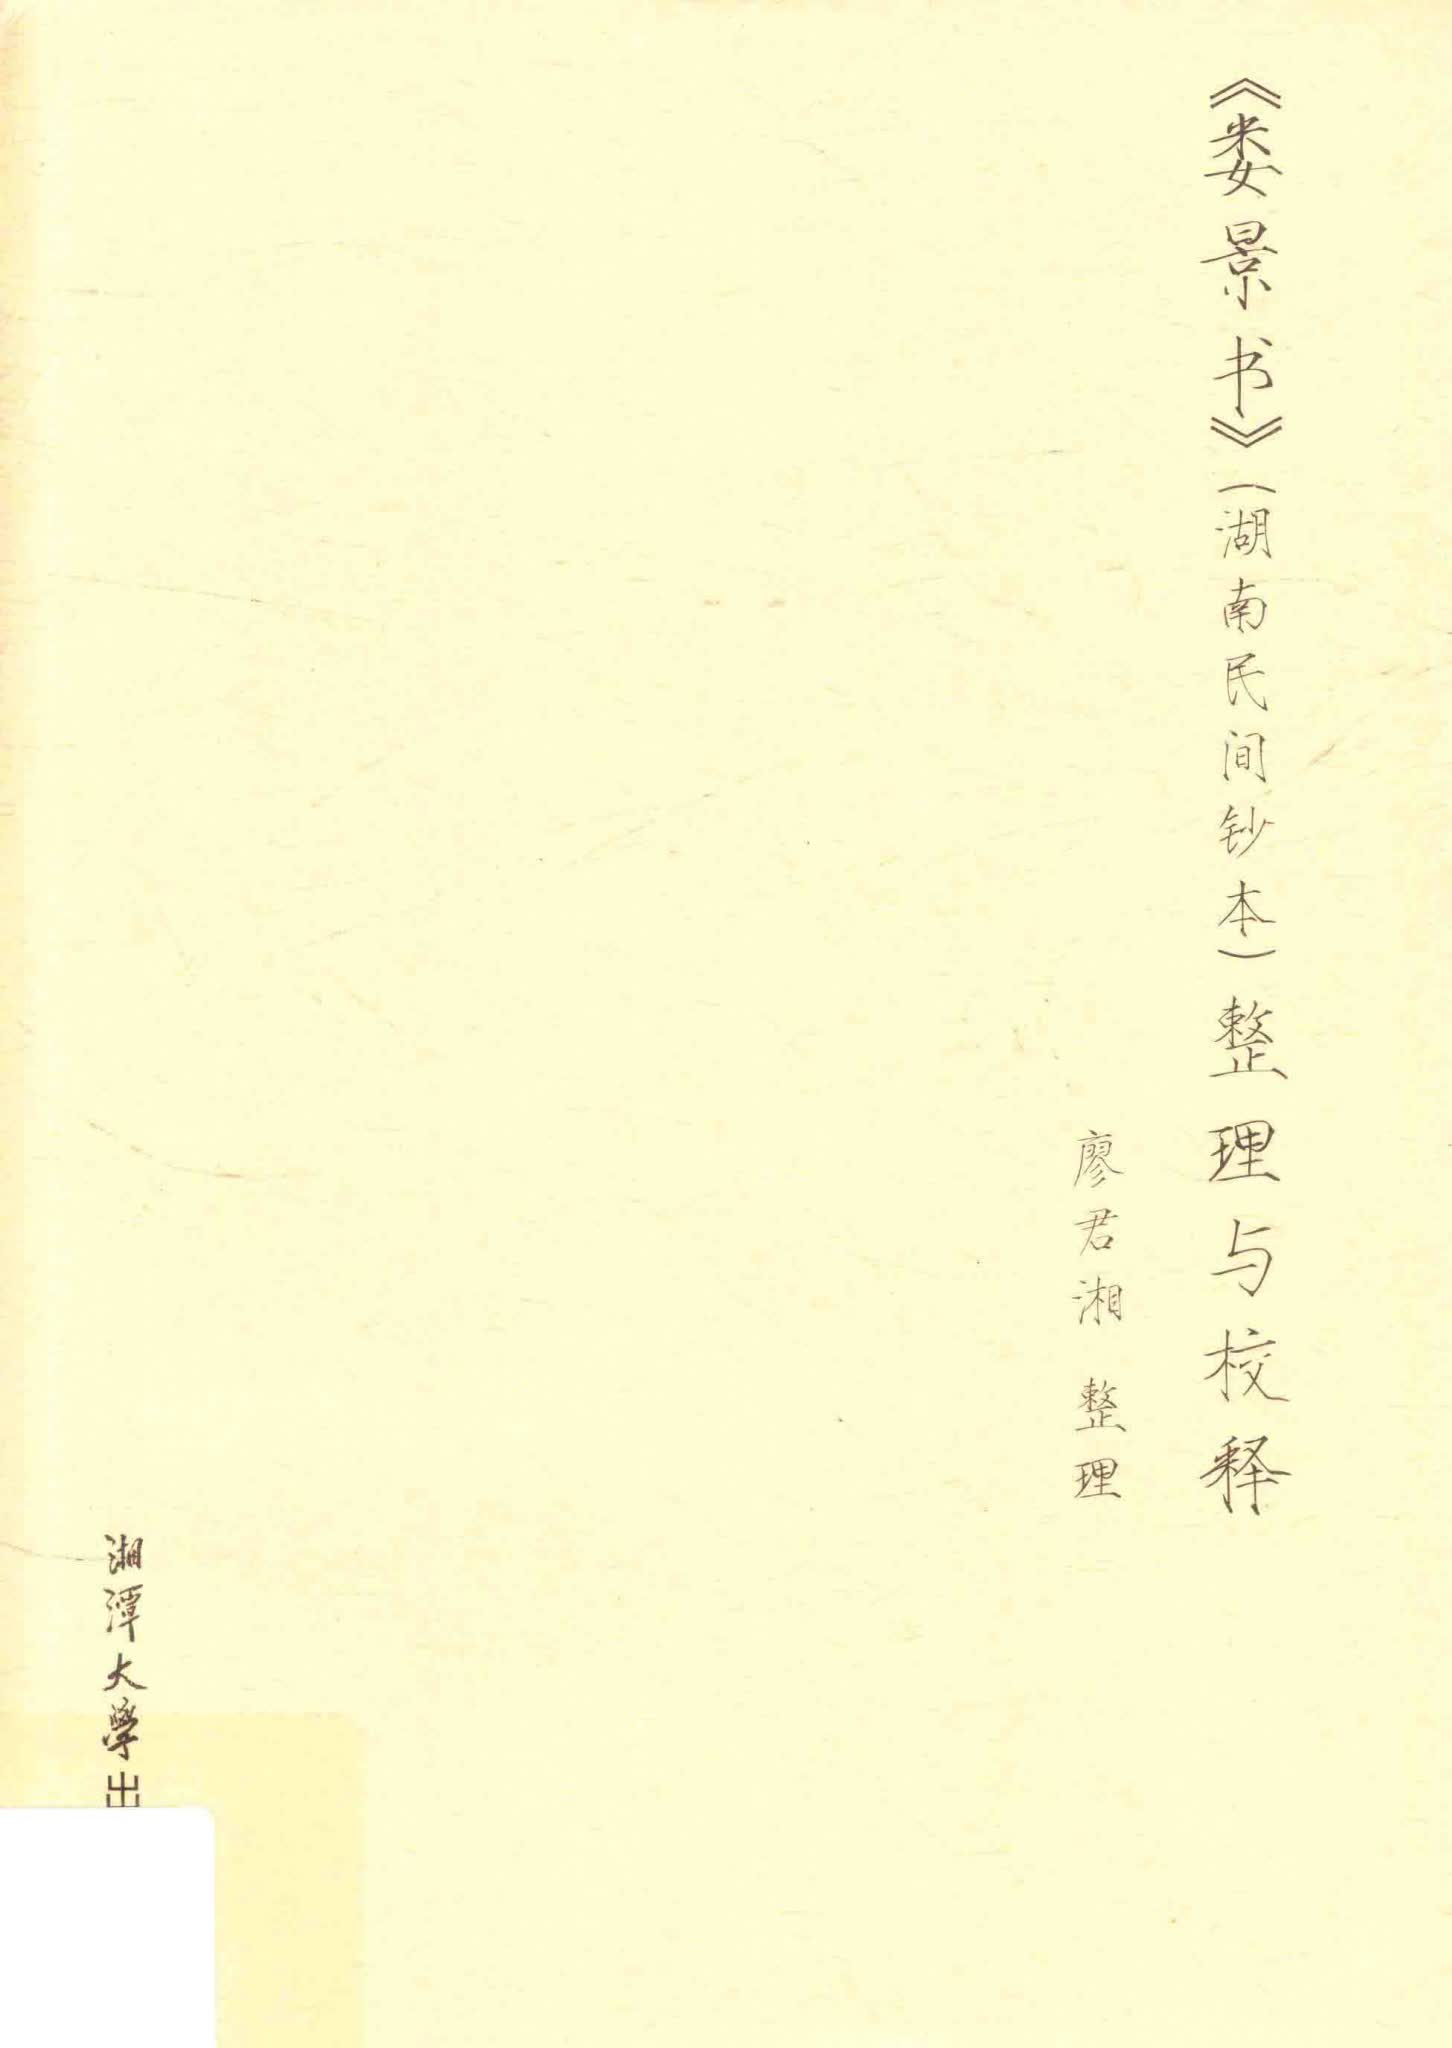 《娄景书》(湖南民间钞本)整理与校释
廖君湘 整理
湘潭大學出